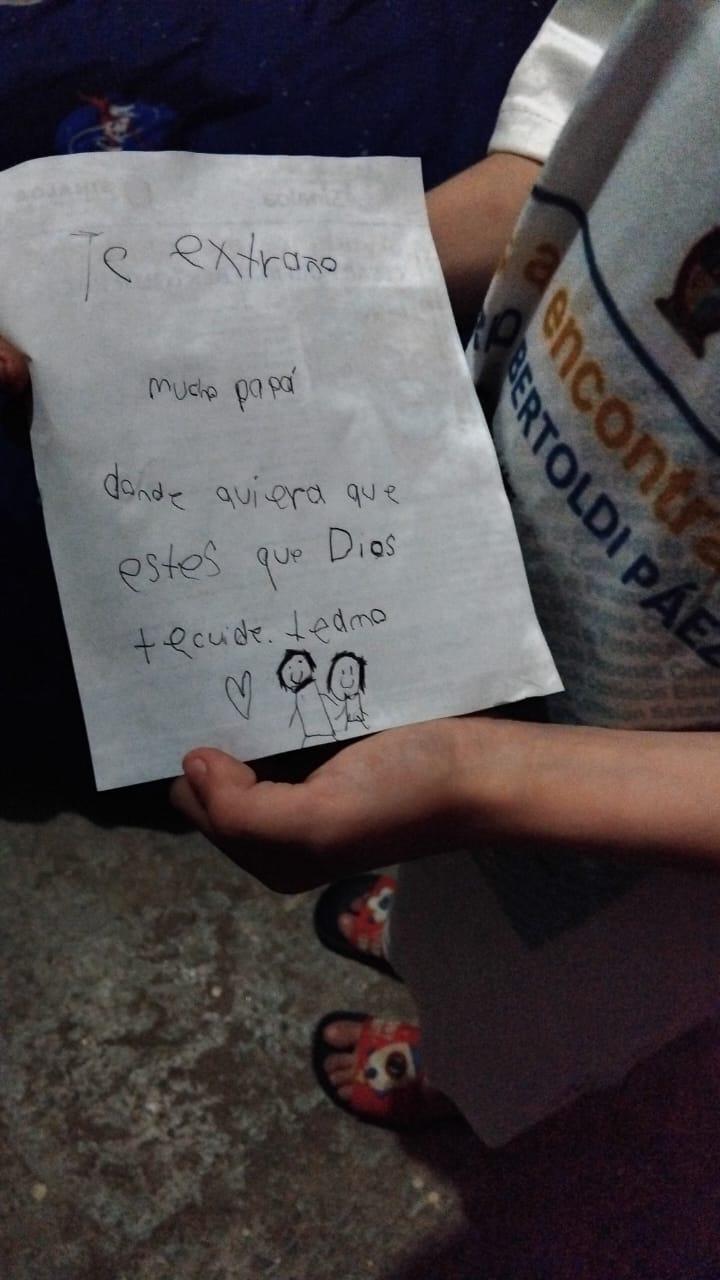 Te extraño
mucho papá
donde quiera que
estes que Dios
tecuide. teamo
a encontra
BERTOLDI PÁEZ